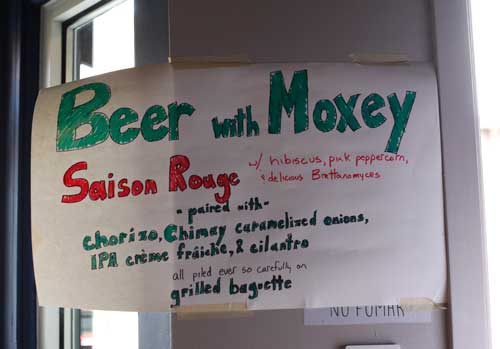 Beer with Moxey
Saison Rouge
w/ hibiscus, pink peppercorn,
& delicious Brettanomyces
- paired with -
chorizo, Chimay caramelized onions,
IPA crème fraîche, & cilantro
all piled ever so carefully on
grilled baguette
NO FUMAR